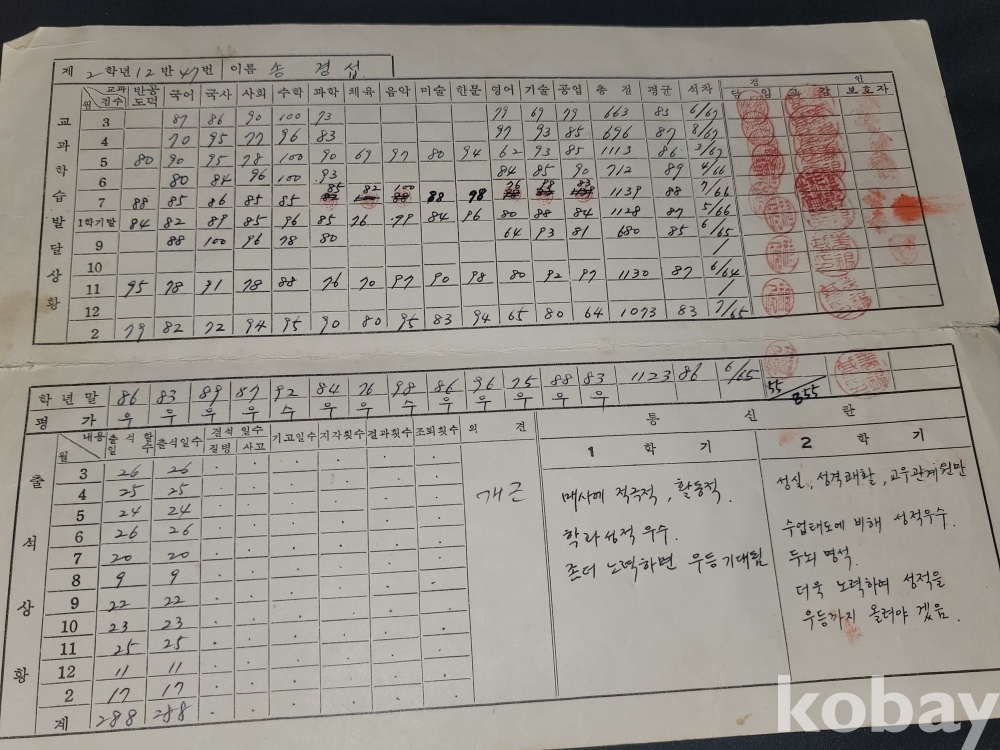 제 2 학년 12 반 47 번 이름 송 경 섭
교과 점수 월 반공도덕 국어 국사 사회 수학 과학 체육 음악 미술 한문 영어 기술 공업 총점 평균 석차 담임 교감 보호자
교과학습발달상황
3 87 86 90 100 93 79 69 79 663 83 6/67
4 70 95 77 96 83 97 93 85 696 87 8/67
5 80 90 95 78 100 90 69 97 80 94 62 93 85 1113 86 3/67
6 80 84 96 100 93 84 85 90 712 89 4/66
7 88 85 86 85 85 85 82 100 88 98 76 83 1139 88 7/66
1학기말 84 82 89 85 96 85 76 99 84 96 80 88 84 1128 87 5/66
9 88 100 96 78 80 64 93 81 680 85 6/65
10
11 95 78 91 78 88 76 70 97 90 98 80 92 97 1130 87 6/64
12
2 79 82 72 94 95 90 80 95 83 94 65 80 64 1073 83 7/65
학년말 86 83 89 87 92 84 76 98 86 96 75 88 83 1123 86 6/65 55/855
평가 우 우 우 우 수 우 우 수 우 우 우 우
출석상황
내용 월 출석할일수 출석일수 결석일수 질병 사고 기고일수 지각횟수 결과횟수 조퇴횟수 의견
3 26 26
4 25 25
5 24 24
6 26 26
7 20 20
8 9 9
9 22 22
10 23 23
11 25 25
12 11 11
2 17 17
계 288 288
개근
통신란
1 학기
매사에 적극적, 활동적.
학과성적 우수.
좀더 노력하면 우등 기대됨
2 학기
성실, 성격쾌활, 교우관계원만
수업태도에 비해 성적우수.
두뇌 명석.
더욱 노력하여 성적을
우등까지 올려야 겠음.
kobay